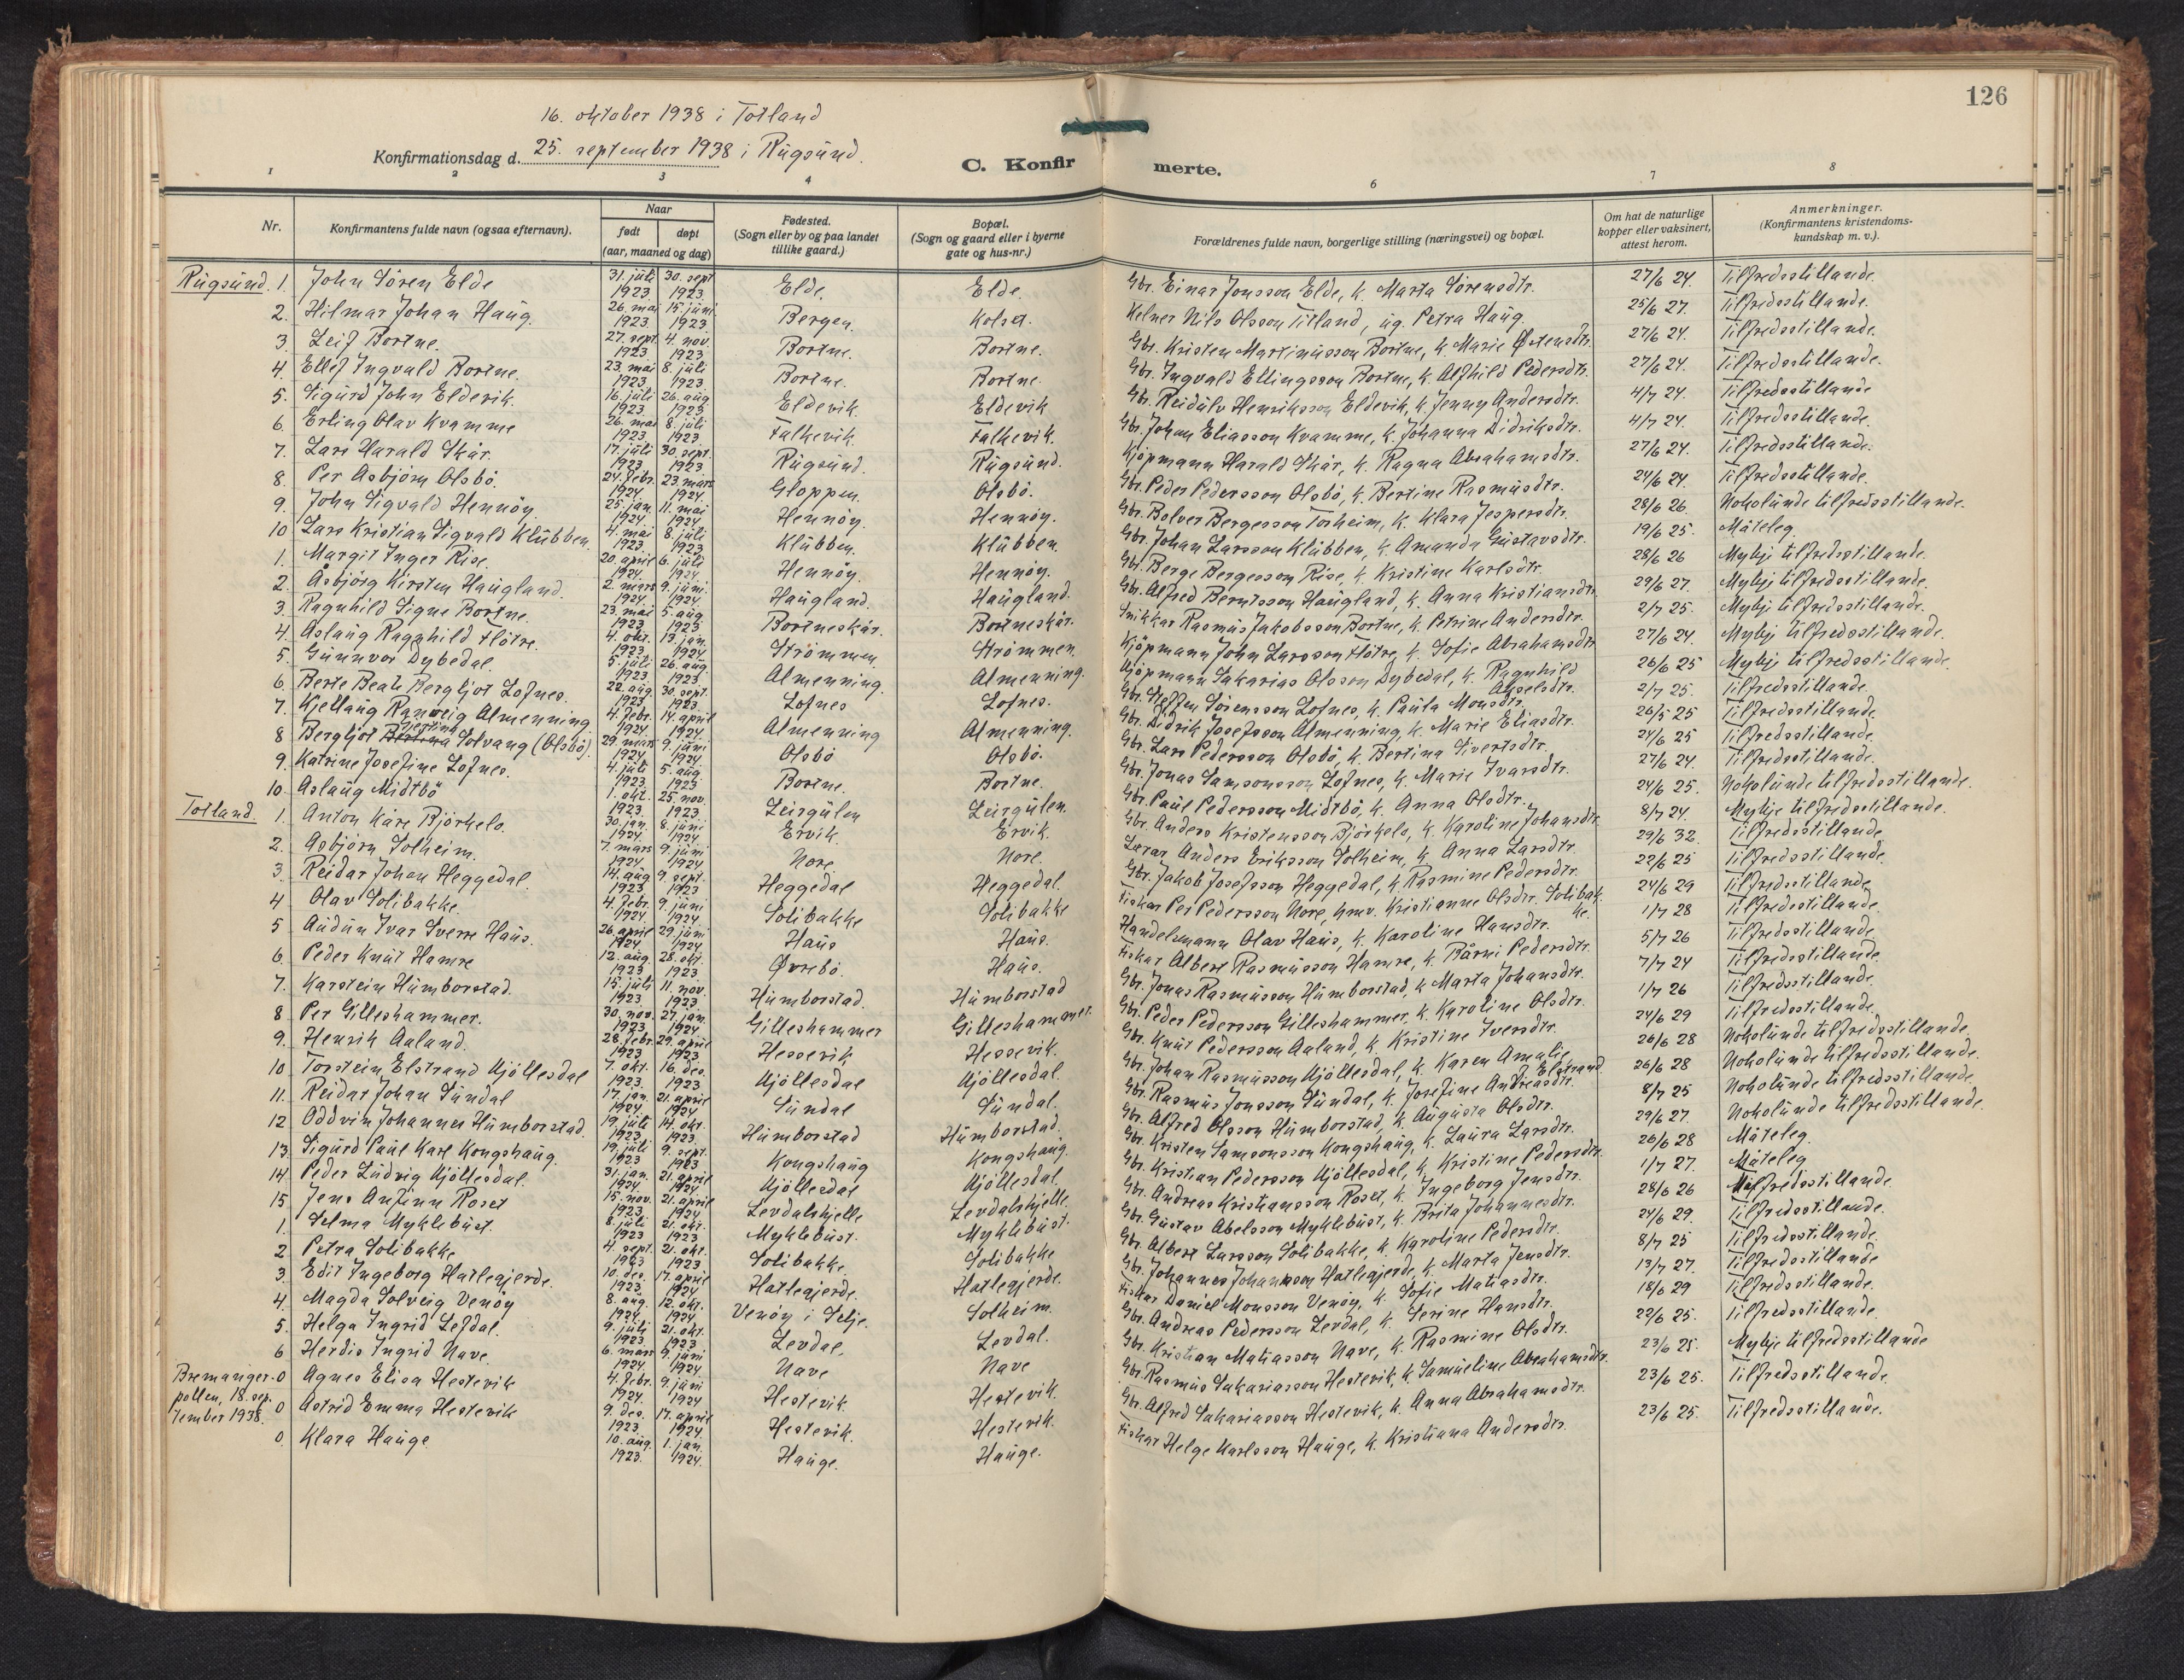 126
16. oktober 1938 i Totland
Konfirmationsdag d. 25. september 1938 i Rugsund.
C. Konfirmerte.
1 2 3 4 6 7 8
Nr. Konfirmantens fulde navn (ogsaa efternavn). Naar født døpt (aar, maaned og dag) Fødested. (Sogn eller by og paa landet tillike gaard.) Bopæl. (Sogn og gaard eller i byerne gate og hus-nr.) Forældrenes fulde navn, borgerlige stilling (næringsvei) og bopæl. Om hat de naturlige kopper eller vaksinert, attest herom. Anmerkninger. (Konfirmantens kristendoms-kundskap m. v.).
Rugsund. 1. John Sören Elde 31. juli 1923 30. sept. 1923 Elde. Elde. Gbr. Einar Jonsson Elde, k. Marta Sörensdtr. 27/6 24. Tilfredsstillande.
2. Hilmar Johan Haug. 26. mai 1923 15. juni 1923. Bergen. Kolset. Kelner Nils Olsson Titland, ug. Petra Haug 25/6 27. Tilfredsstillande.
3 Leif Bortne. 27. sept. 1923 4. nov. 1923 Bortne. Bortne. Gbr. Kristen Martinusson Bortne, k. Marie Østensdtr. 27/6 24. Tilfredsstillande.
4. Ellef Ingvald Bortne. 23. mai 1923. 8. juli 1923. Bortne. Bortne. Gbr. Ingvald Ellingsson Bortne, k. Alfhild Pedersdtr. 27/6 24. Tilfredsstillande.
5. Sigurd John Eldevik. 16. juli 1923 26. aug 1923 Eldevik. Eldevik Gbr. Reidulv Henriksson Eldevik, k. Jenny Andersdtr. 4/7 24. Tilfredsstillande
6. Erling Olav Kvamme 26. mai 1923 8. juli 1923 Falkevik. Falkevik. Gbr. Johan Eliasson Kvamme, k. Johanna Didriksdtr. 4/7 24. Tilfredsstillande.
7. Lars Harald Skår. 17. juli 1923 30. sept. 1923. Rugsund. Rugsund. Kjöpmann Harald Skår, k. Ragna Abrahamsdtr. 27/6 24. Tilfredsstillande.
8. Per Asbjörn Olsbö. 24. febr. 1924 23. mars 1924. Gloppen. Olsbö. Gbr. Peder Pedersson Olsbö, k. Bertine Rasmusdtr. 24/6 24 Tilfredsstillande.
9. John Sigvald Hennöy. 25. jan. 1924 11. mai 1924 Hennöy. Hennöy. Gbr. Bolver Bergesson Torheim, k. Klara Jespersdtr. 28/6 26. Nokolunde tilfredsstillande.
10 Lars Kristian Sigvald Klubben. 4. mai 1923 8. juli 1923 Klubben. Klubben. Gbr. Johan Larsson Klubben, k. Amanda Gustavsdtr. 19/6 25. Måteleg
1. Margit Inger Rise. 20. april 1924 6. juli 1924 Hennöy. Hennöy. Gbr. Berge Bergesson Rise, k. Kristine Karlsdtr. 28/6 26 Mykje tilfredsstillande.
2. Åsbjörg Kirsten Haugland. 2. mars 1924 9. juni. 1924 Haugland. Haugland. Gbr. Alfred Berntsson Haugland, k. Anna Kristiansdtr. 29/6 27 Mykje tilfredsstillande.
3. Ragnhild Signe Bortne. 23. mai 1923 5. aug. 1923 Bortneskår. Bortneskår. Snikkar Rasmus Jakobsson Bortne, k. Petrine Andersdtr. 2/7 25. Mykje tilfredsstillande.
4. Aslaug Ragnhild Flötre. 4. okt. 1923 13. jan. 1924 Strömmen. Strømmen. Kjöpmann John Larsson Flötre, k. Sofie Abrahamsdtr 27/6 24. Mykje tilfredsstillande.
5. Gunnvor Dybedal. 5. juli 1923 26. aug. 1923 Almenning. Almenning. Kjöpmann Sakarias Olsson Dybedal, k. Ragnhild Akselsdtr. 26/6 25 Mykje tilfredsstillande.
6. Berte Beate Bergljot Lofnes. 22. aug. 1923 30. sept. 1923. Lofnes Lofnes. Gbr. Steffen Sörensson Lofnes, k. Paula Monsdtr. 2/7 25. Tilfredsstillande.
7. Kjellaug Ranveig Almenning 4. febr. 1924 14. april 1924. Almenning Almenning. Gbr. Didrik Josefsson Almenning, k. Marie Eliasdtr. 26/5 25 Tilfredsstillande
8 Bergljot Bertina Solvang (Olsbö). 29. mars 1924 9. juni 1924 Olsbö Olsbö. Gbr. Lars Pedersson Olsbö, k. Bertina Sivertsdtr. 24/6 25 Tilfredsstillande.
9. Katrine Josefine Lofnes. 4. juli 1923 5. aug. 1923 Bortne. Bortne. Gbr. Jonas Samsonsson Lofnes, k. Marie Ivarsdtr. 27/6 24. Tilfredsstillande.
10. Aslaug Midtbö 1. okt. 1923 25. nov. 1923 Leirgulen Leirgulen. Gbr. Paul Pedersson Midtbö, k. Anna Olsdtr. 24/6 25. Nokolunde tilfredsstillande.
Totland. 1. Anton Kåre Björkelo. 30. jan. 1924 8. juni 1924 Ervik. Ervik. Gbr. Anders Kristensson Björkelo, k. Karoline Johansdtr. 8/7 24. Mykje tilfredsstillande.
2. Asbjörn Solheim. 7. mars 1924 9. juni 1924 Nore. Nore. Lærar Anders Eriksson Solheim, k. Anna Larsdtr. 29/6 32. Tilfredsstillande
3. Reidar Johan Heggedal. 14. aug 1923 9. sept. 1923 Heggedal Heggedal. Gbr. Jakob Josefsson Heggedal, k. Rasmine Pedersdtr. 22/6 25 Tilfredsstillande.
4 Olav Solibakke. 4. febr. 1924 9. juni 1924 Solibakke Solibakke Fiskar Per Pedersson Nore, hmv. Kristianne Olsdtr. Solibakke. 24/6 29 Tilfredsstillande
5 Audun Ivar Sverre Haus. 26. april 1924 29. juni 1924 Haus Haus. Handelsmann Olav Haus, k. Karoline Hansdtr. 1/7 28 Tilfredsstillande.
6. Peder Knut Hamre 12. aug. 1923 28. okt. 1923 Øvrebö. Haus. Fiskar Albert Rasmusson Hamre, k. Bårni Pedersdtr. 5/7 26 Tilfredsstillande
7. Karstein Humborstad. 15. juli 1923 11. nov. 1923 Humborstad. Humborstad Gbr. Jonas Rasmusson Humborstad, k. Marta Johansdtr. 7/7 24 Tilfredsstillande.
8 Per Gilleshammer. 30. nov. 1923 27. jan. 1924 Gilleshammer Gilleshammer. Gbr. Peder Pedersson Gilleshammer, k. Karoline Olsdtr. 1/7 26 Tilfredsstillande.
9. Henrik Aaland. 28. febr. 1923 29. april 1923 Hessevik Hessevik. Gbr. Knut Pedersson Aaland, k. Kristine Iversdtr. 24/6 29 Tilfredsstillande.
10 Torstein Elstrand Kjöllesdal 7. okt. 1923. 16. des. 1923 Kjöllesdal Kjöllesdal. Gbr. Johan Rasmusson Kjöllesdal, k. Karen Amalie Elstrand 26/6 28 Nokolunde tilfredsstillande.
11. Reidar Johan Sundal 17. jan. 1924. 21. april 1924 Sundal Sundal. Gbr. Rasmus Jonsson Sundal, k. Josefine Andreasdtr. 26/6 28 Nokolunde tilfredsstillande.
12 Oddvin Johannes Humborstad. 19. juli 1923 14. okt. 1923. Humborstad Humborstad. Gbr. Alfred Olsson Humborstad, k. Augusta Olsdtr. 8/7 25 Nokolunde tilfredsstillande.
13. Sigurd Paul Karl Kongshaug. 19. juli 1923 9. sept. 1923 Kongshaug Kongshaug. Gbr. Kristen Samsonsson Kongshaug, k. Laura Larsdtr. 29/6 27 Nokolunde tilfredsstillande.
14. Peder Ludvig Kjöllesdal. 31. jan. 1924 21. april 1924 Kjöllesdal Kjöllesdal. Gbr. Kristian Pedersson Kjöllesdal, k. Kristine Pedersdtr. 26/6 28 Måteleg.
15 Jens Anfinn Roset 15. nov. 1923. 21. april 1924 Levdalskjelle Levdalskjelle. Gbr. Andreas Kristiansson Roset, k. Ingeborg Jensdtr. 1/7 27. Måteleg
1. Selma Myklebust. 8. juli 1923 21. okt. 1923 Myklebust. Myklebust. Gbr. Gustav Abelsson Myklebust, k. Brita Johannesdtr. 28/6 26 Tilfredsstillande.
2 Petra Solibakke 4. sept. 1923 21. okt. 1923 Solibakke. Solibakke Gbr. Albert Larsson Solibakke, k. Karoline Pedersdtr. 24/6 29. Tilfredsstillande.
3. Edit Ingeborg Hatlegjerde. 10. des. 1923 17. april 1924 Hatlegjerde. Hatlegjerde. Gbr. Johannes Johansson Hatlegjerde, k. Marta Jensdtr. 8/7 25 Tilfredsstillande.
4. Magda Solveig Venöy 8. aug. 1924. 12. okt. 1924 Venöy i Selje. Solheim. Fiskar Daniel Monsson Venöy, k. Sofie Matiasdtr. 13/7 27. Tilfredsstillande
5. Helga Ingrid Lefdal. 9. juli 1923 21. okt. 1923 Levdal. Levdal. Gbr. Andreas Pedersson Levdal, k. Serine Hansdtr. 18/6 29 Tilfredsstillande.
6 Herdis Ingrid Nave. 6. mars 1924. 9. juni 1924 Nave Nave Gbr. Kristian Matiasson Nave, k. Rasmine Olsdtr. 22/6 25. Tilfredsstillande.
Bremanger- 0 Agnes Elisa Hestevik 4. febr. 1924. 9. juni 1924 Hestevik Hestevik. Gbr. Rasmus Sakariasson Hestevik, k. Samueline Abrahamsdtr. 23/6 25. Mykje tilfredsstillande
pollen, 18. sep-
tember 1938. 0 Astrid Emma Hestevik 9. des. 1923. 17. april 1924. Hestevik. Hestevik. Gbr. Alfred Sakariasson Hestevik, k. Anna Abrahamsdtr. 23/6 25. Tilfredsstillande.
0. Klara Hauge 10. aug. 1923. 1. jan. 1924. Hauge. Hauge. Fiskar Helge Karlsson Hauge, k. Kristiana Andersdtr. 23/6 25. Tilfredsstillande.